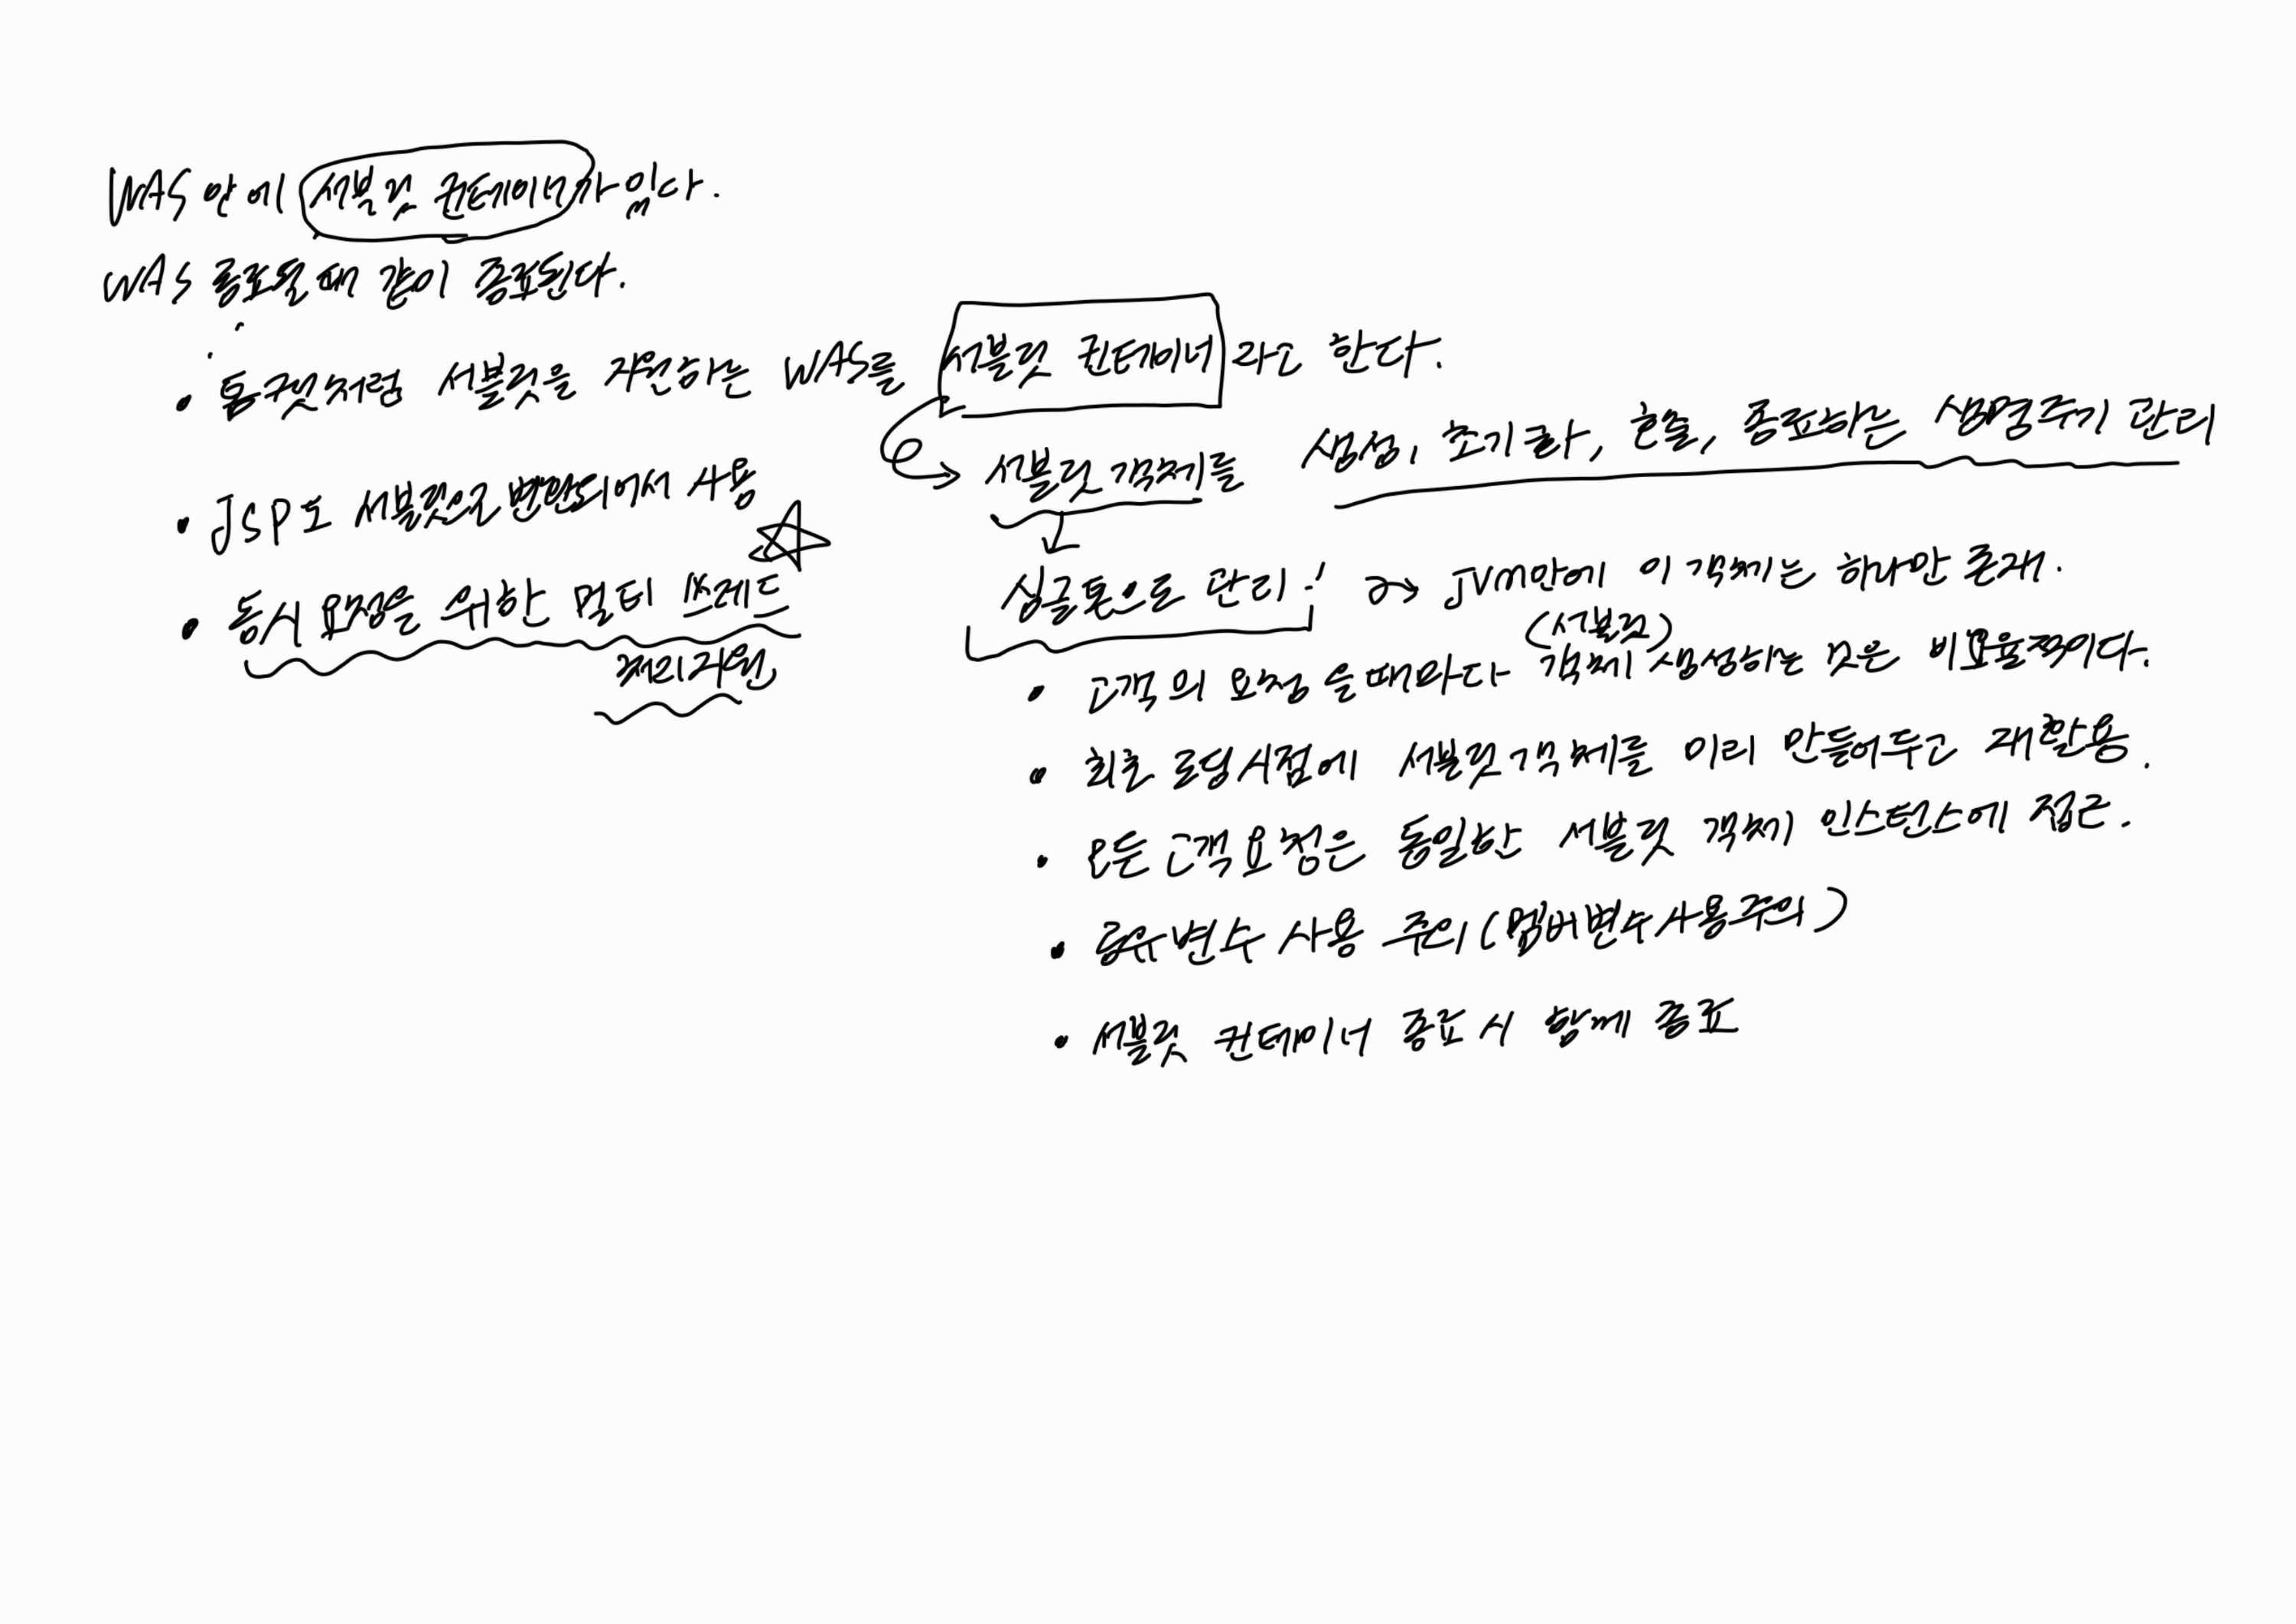 WAS 안에 서블릿 컨테이너가 있다.
WAS 종료될때 같이 종료된다.
• 톰캣처럼 서블릿을 지원하는 WAS를 서블릿 컨테이너 라고 한다.
서블릿 객체를 생성, 초기화, 호출, 종료하는 생명주기 관리
• JSP도 서블릿으로 변환되어서 사용
• 동시 요청을 위한 멀티 쓰레드
처리 지원
싱글톤으로 관리! → JVM안에 이 객체는 하나만 존재.
(서블릿)
• 고객의 요청 올때마다 객체 생성하는 것은 비효율적이다.
• 최초 로딩시점에 서블릿 객체를 미리 만들어두고 재활용.
• 모든 고객 요청은 동일한 서블릿 객체 인스턴스에 접근.
• 공유변수 사용 주의 (멤버변수 사용주의)
• 서블릿 컨테이너 종료 시 함께 종료